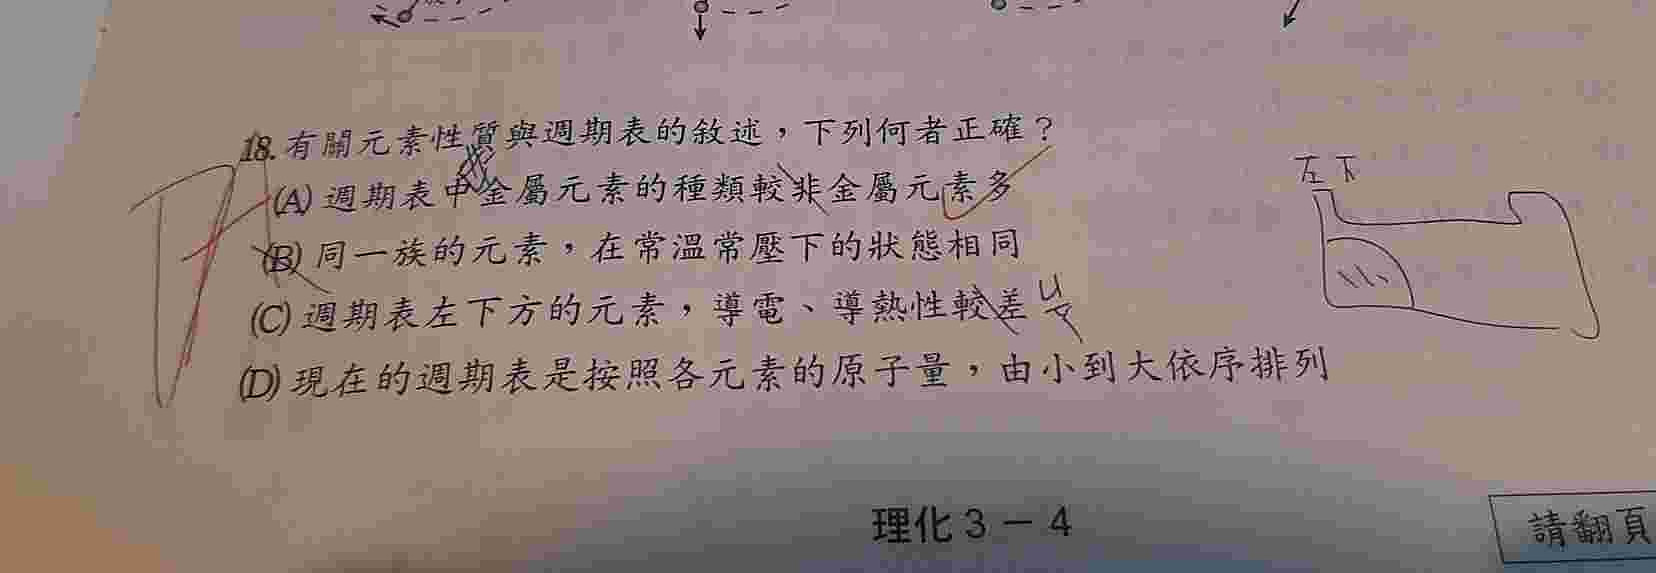 18. 有關元素性質與週期表的敘述，下列何者正確？
(A) 週期表中金屬元素的種類較非金屬元素多
(B) 同一族的元素，在常溫常壓下的狀態相同
(C) 週期表左下方的元素，導電、導熱性較差
(D) 現在的週期表是按照各元素的原子量，由小到大依序排列
左下
理化 3 － 4
請翻頁